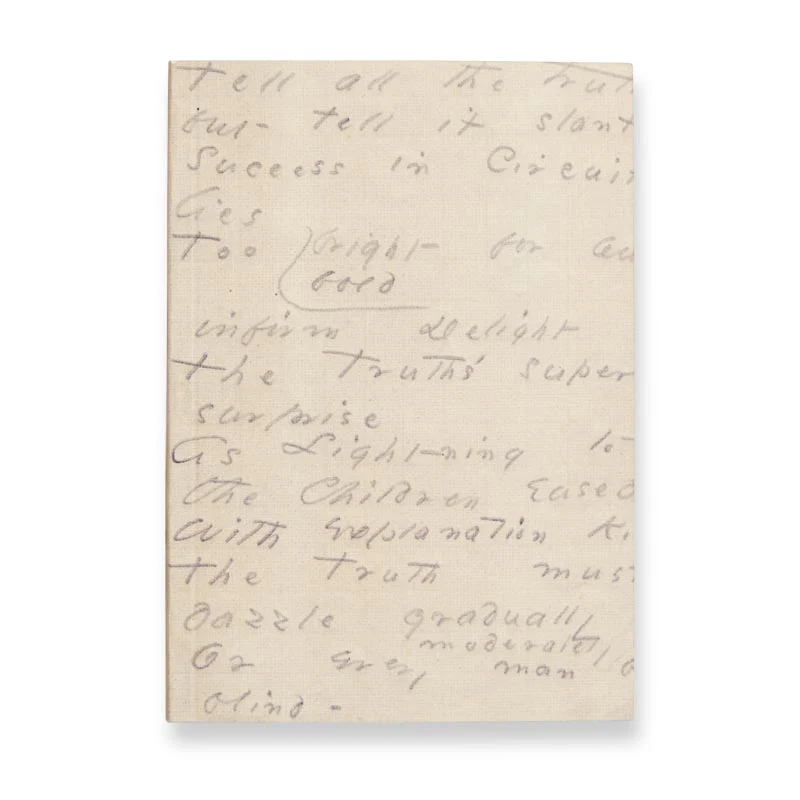 Tell all the trut
but tell it slant
Success in Circui
lies
Too bright for ou
bold
infirm Delight
The Truth's super
surprise
As Lightning to
the Children Eased
With Explanation Ki
The Truth must
dazzle gradually
moderately
Or every man b
blind -